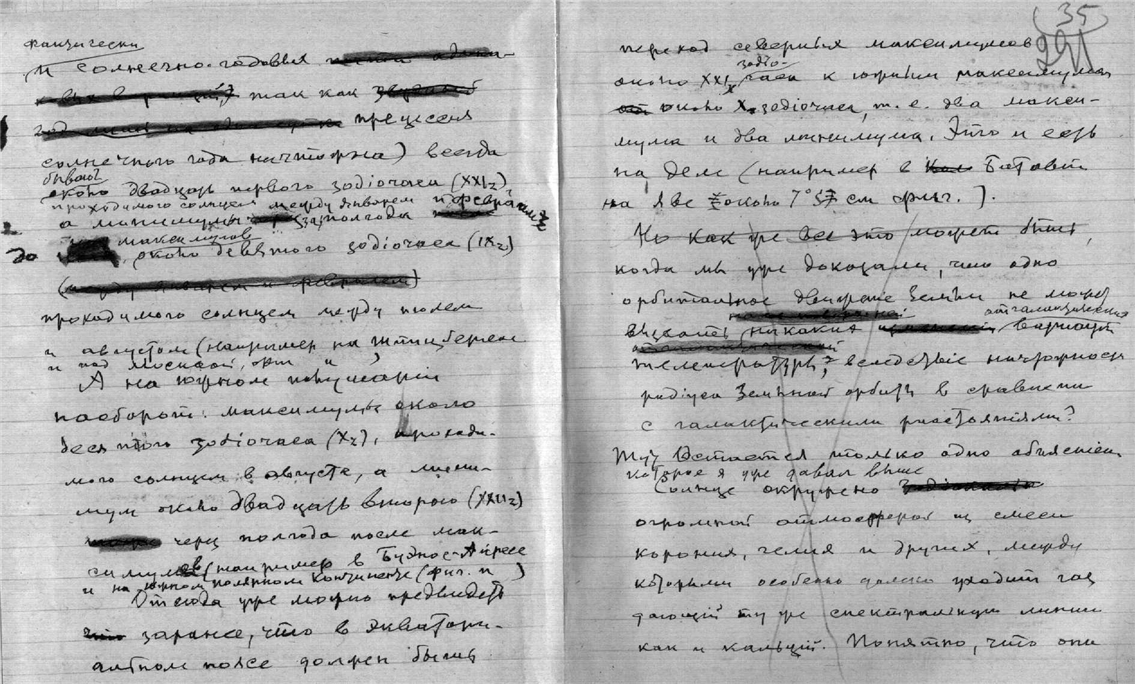 фактически
и солнечно-годовых
так как
прецессия
солнечного года ничтожна) всегда
бывают
около двадцать первого зодіочаса (XXIz),
проходимого солнцем между январем и февралем,
а минимумы за полгода
до максимумов
около девятого зодіочаса (IXz)
(между январем и февралем)
проходимого солнцем между июлем
и августом (например на Шпицбергене
и над Москвой, фиг. и )
А на южном полушаріи
наоборот: максимумы около
десятого зодіочаса (Xz), проходи-
мого солнцем в августе, а мини-
мум около двадцать второго (XXIIz)
через полгода после мак-
симумов (например в Буэнос-Айресе
и на южном полярном континенте (фиг. и )
Отсюда уже можно предвидеть
что заранее, что в экватори-
альном поясе должен быть
(35)
291
переход северных максимумов
зодіо-
около XXI часа к южным максимумам
около X зодіочаса, т. е. два макси-
мума и два минимума. Это и есть
на деле (например в Батавіи
на Яве около 7° см фиг. ).
Но как уже все это может быть,
когда мы уже доказали, что одно
орбитальное движение Земли не может
вызвать никаких вариаций
температуры, вследствіе ничтожности
радіуса Земной орбиты в сравнении
с галактическими расстояніями?
Тут Остается только одно объясненіе
которое я уже давал выше
Солнце окружено
огромной атмосферой из смеси
коронія, гелия и других, между
которыми особенно далеко уходит газ
дающій ту же спектральную линию
как и кальцій. Понятно, что они